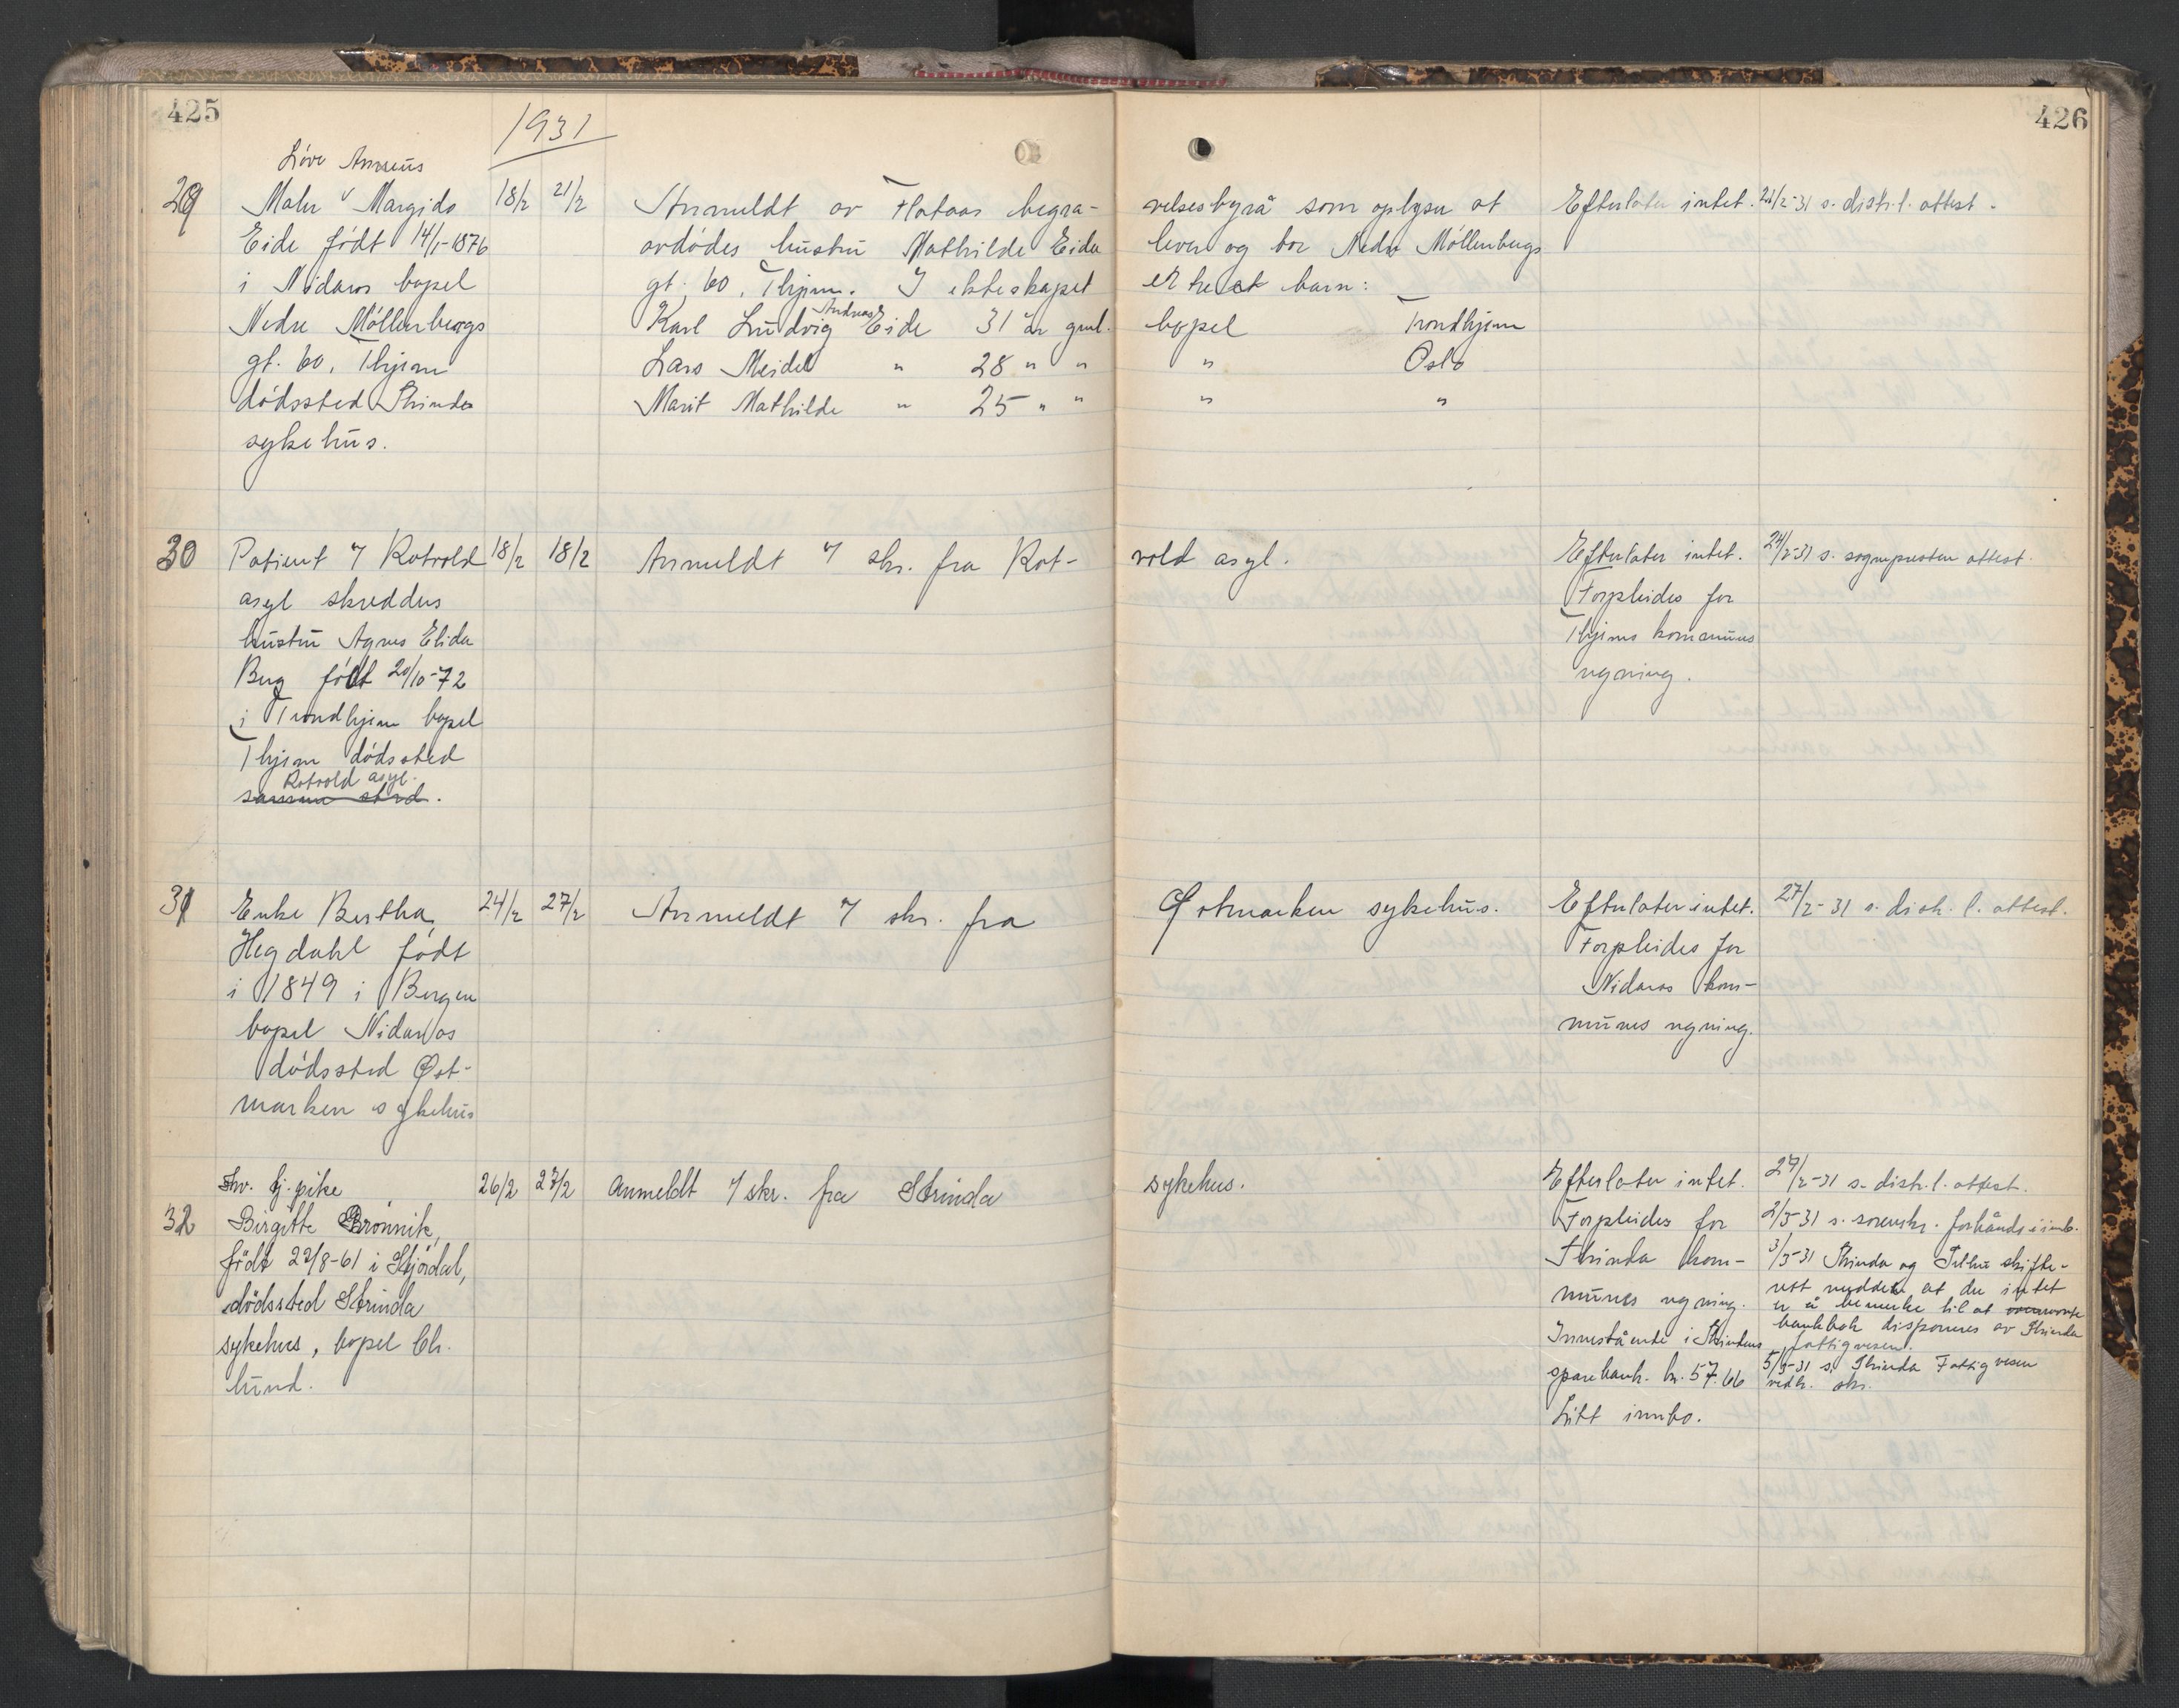 425
1931
426
29
Maler Margido
18/2
21/2
Anmeldt av Flataas begra-
velsesbyrå som oplyser at
Efterlater intet.
21/2-31 s. distr.l. attest.
Eide født 14/1-1876
avdødes hustru Mathilde Eide
lever og bor Nedre Möllenbergs
i Nidaros bopel
gt. 60, Thjem. I ekteskapet
er barn:
Nedre Möllenbergs
Andreas
Karl Ludvig Eide 31 år gml.
bopel Trondhjem
gt. 60, Thjem
Lars Meidel " 28 " "
" Oslo
dödssted Strinda
Marit Mathilde " 25 " "
" "
sykehus.
30
Patient i Rotvold
18/2
18/2
Anmeldt i skr. fra Rot-
vold asyl.
Efterlater intet.
24/2-31 s. sognepresten attest.
asyl skredder
Forpleides for
hustru Agnes Elida
Thjems kommunes
Berg födt 20/10-72
regning.
i Trondhjem bopel
Thjem dödssted
Rotvold asyl.
samme sted.
31
Enke Bertha
24/2
27/2
Anmeldt i skr. fra
Østmarken sykehus.
Efterlater intet.
27/2-31 s. distr. l. attest.
Hegdahl födt
Forpleides for
i 1849 i Bergen
Nidaros kom-
bopel Nidaros
munes regning.
dödssted Øst-
marken sykehus
32
fhv. tj. pike
26/2
27/2
Anmeldt i skr. fra Strinda
sykehus.
Efterlater intet.
27/2-31 s. distr.l. attest.
Birgitte Brönnik,
Forpleides for
2/3-31 s. sorenskr. forhånds
födt 22/8-61 i Stjördal,
Strinda kom-
3/3-31 Strinda og Selbu skifte-
dödssted Strinda
munes regning.
rett meddeler at der intet
er å bemerke til at
sykehus, bopel Ch.
Innestående i Strindens
bankbok disponeres av Strinda
fattigvesen.
lund.
sparebank kr. 57.66
5/3-31 s. Strinda Fattigvesen
vedk. skr.
Litt innbo.